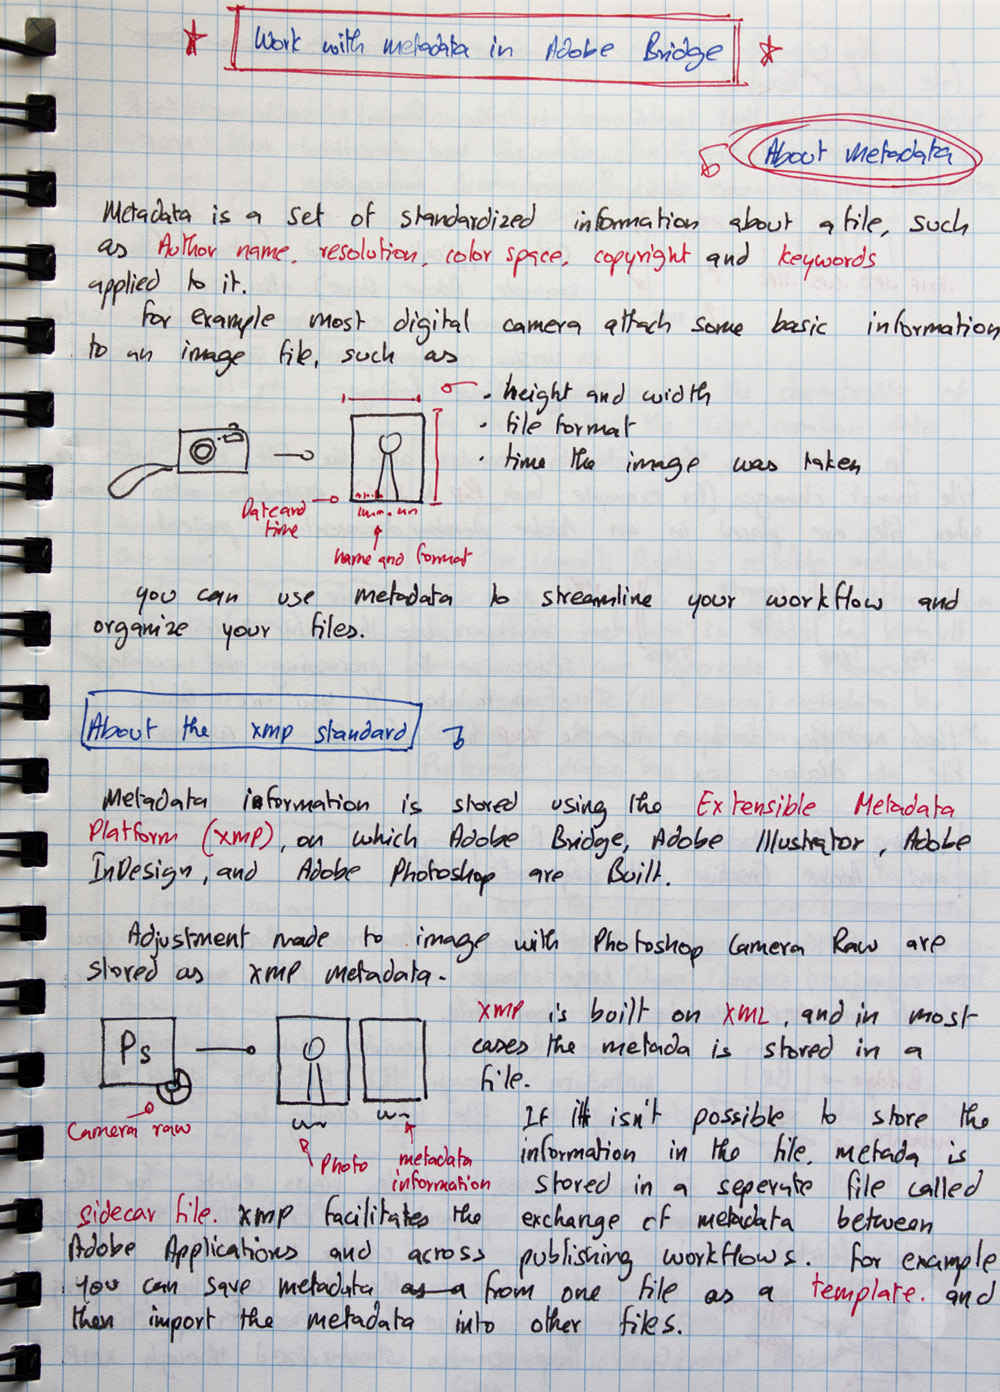 Work with metadata in Adobe Bridge
About metadata
Metadata is a set of standardized information about a file, such
as Author name, resolution, color space, copyright and keywords
applied to it.
For example most digital camera attach some basic information
to an image file, such as
. height and width
. file format
. time the image was taken
Date and
time
name and format
you can use metadata to streamline your workflow and
organize your files.
About the xmp standard
Metadata information is stored using the Extensible Metadata
Platform (xmp), on which Adobe Bridge, Adobe Illustrator, Adobe
InDesign, and Adobe Photoshop are Built.
Adjustment made to image with Photoshop Camera Raw are
stored as xmp metadata.
Ps
Camera raw
Photo
metadata
information
xmp is built on XML, and in most
cases the metada is stored in a
file.
If it isn't possible to store the
information in the file. metada is
stored in a seperate file called
sidecar file. xmp facilitates the exchange of metadata between
Adobe Applications and across publishing workflows. For example
you can save metadata as a from one file as a template. and
then import the metadata into other files.